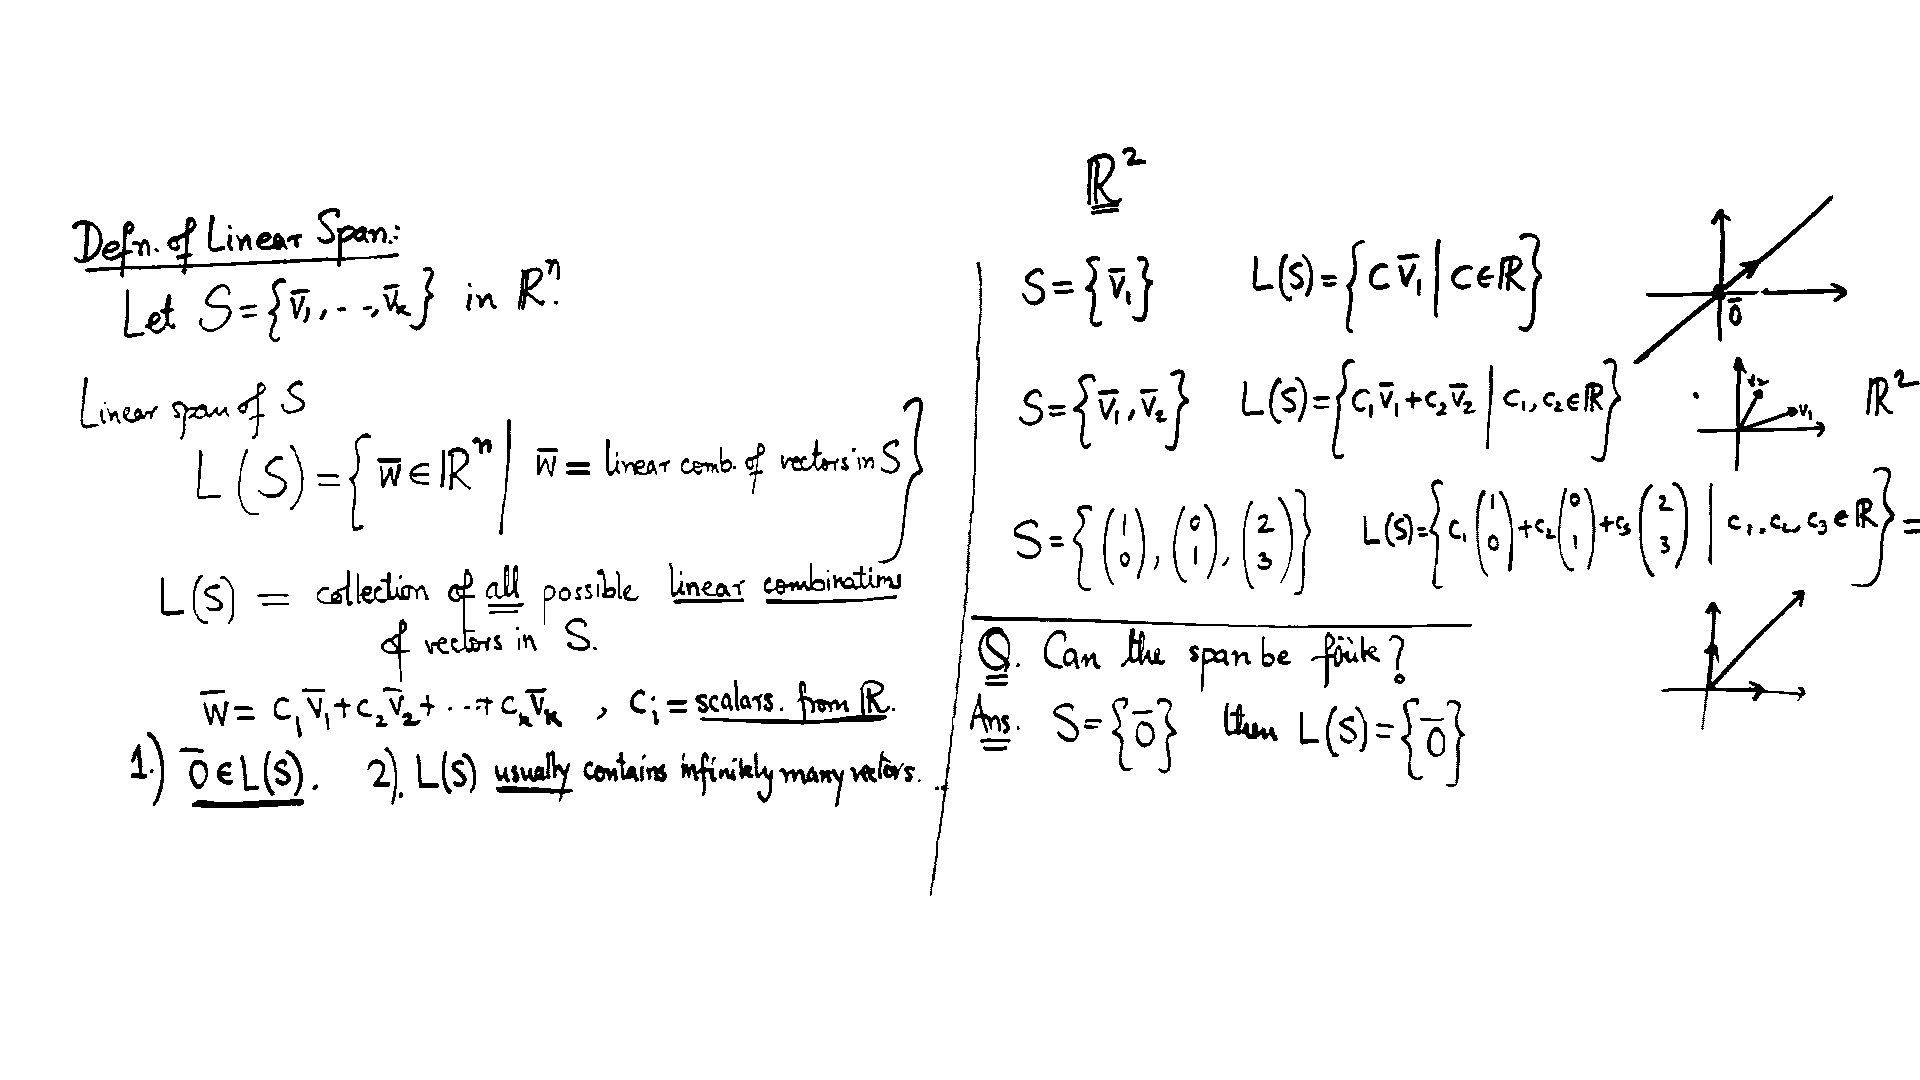 Defn. of Linear Span:
Let S = {v̅₁, . . , v̅ₖ} in ℝⁿ.
Linear span of S
L(S) = { w̅ ∈ ℝⁿ | w̅ = linear comb. of vectors in S }
L(S) = collection of all possible linear combinations
of vectors in S.
w̅ = c₁v̅₁ + c₂v̅₂ + ... + cₖv̅ₖ , cᵢ = scalars. from ℝ.
1.) 0̅ ∈ L(S). 2). L(S) usually contains infinitely many vectors. ..
ℝ²
S = {v̅₁} L(S) = { c v̅₁ | c ∈ ℝ }
0̅
S = {v̅₁, v̅₂} L(S) = { c₁v̅₁ + c₂v̅₂ | c₁, c₂ ∈ ℝ }
v₂ v₁ ℝ²
S = { (1 0), (0 1), (2 3) } L(S) = { c₁ (1 0) + c₂ (0 1) + c₃ (2 3) | c₁, c₂, c₃ ∈ ℝ } =
Q. Can the span be finite?
Ans. S = {0̅} then L(S) = {0̅}